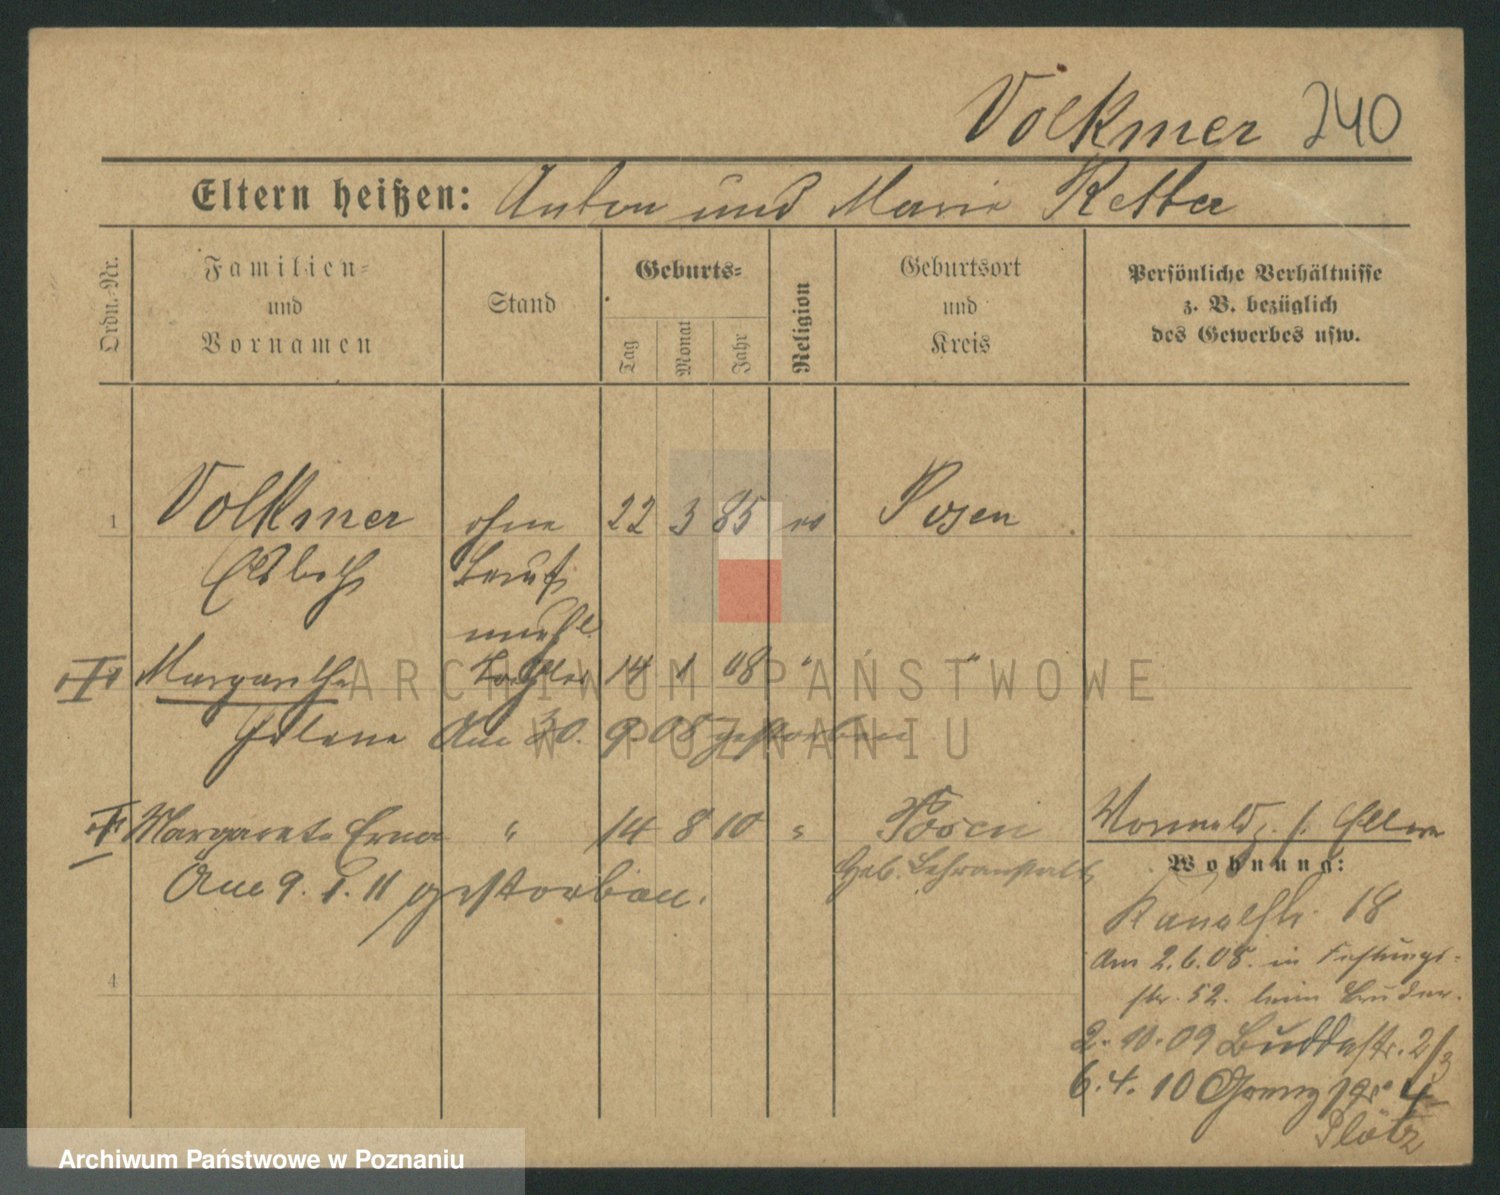 Volkmer 240
Eltern heißen: Anton und Marie Retter
Ordn.-Nr.
Familien- und Vornamen
Stand
Geburts-
Tag
Monat
Jahr
Religion
Geburtsort und Kreis
Persönliche Verhältnisse z. B. bezüglich des Gewerbes usw.
1 Volkmer ohne 22 3 85 Posen
Elsbeth Beruf
unehl.
Margarethe Tochter 14 1 08 " "
Helene Am 30. 9. 08 gestorben
Margarete Erna " 14 8 10 " Posen
Heb. Lehranstalt
Am 9. 1. 11 gestorben.
4
Wohnung:
Kanalstr. 18
Am 2.6.08. in Festungs-
str. 52. beim Bruder.
2.10.09 Buddestr. 2/3
6.4.10 4
Plötz
ARCHIWUM PAŃSTWOWE
W POZNANIU
Archiwum Państwowe w Poznaniu